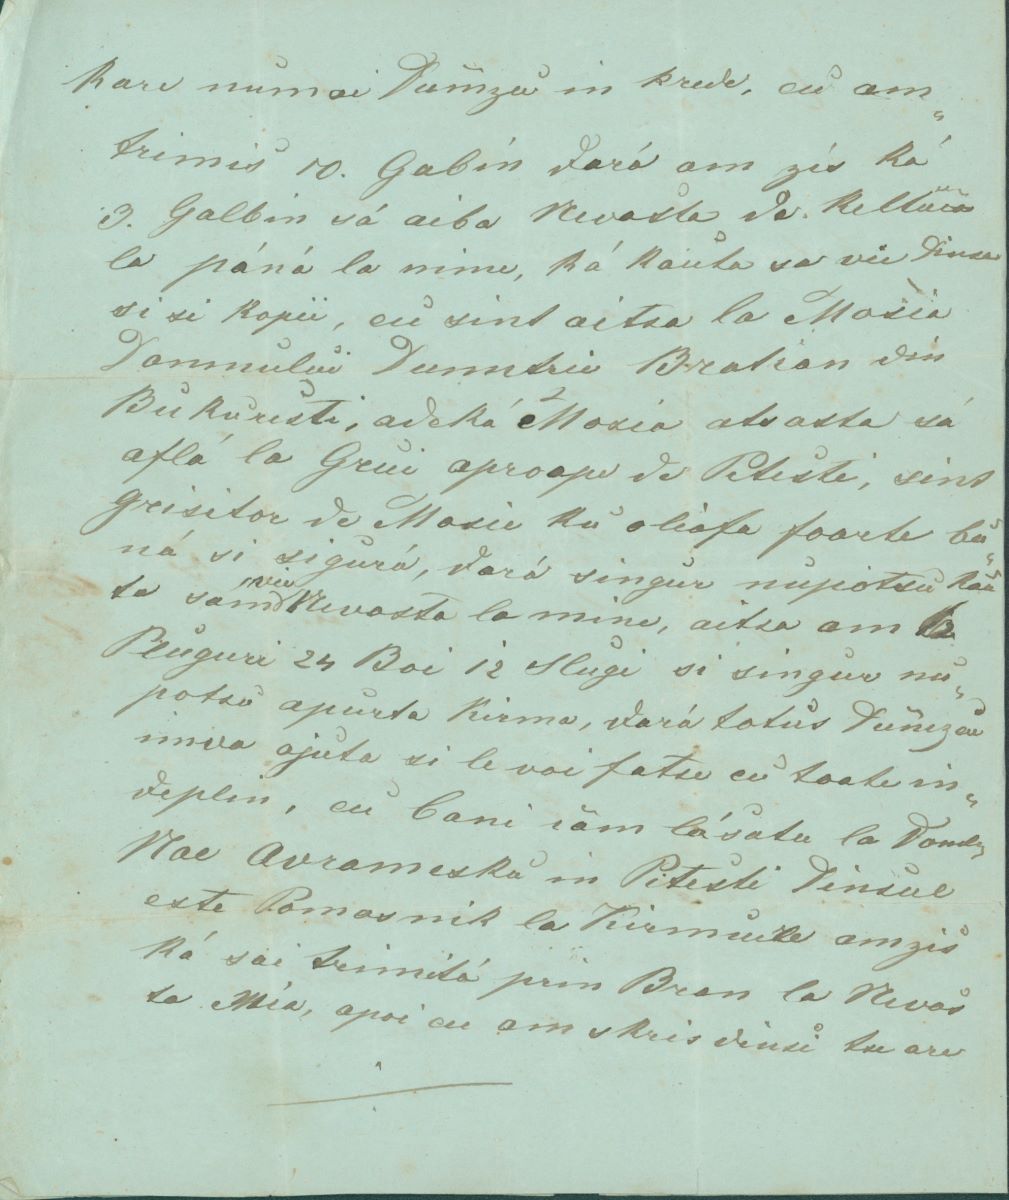 Kare numai Dumzeŭ in krede, eŭ am„
trimis 10. Gabin dará am zis ká
3. Galbin sá aiba Nevasta de keltŭĕa
la páná la mine, ká kaŭta sa vie Dinsa
si si kopii, eŭ sint aitsa la Mosia
Domnuluĭ Dumitriŭ Bratian din
Bŭkŭresti, adeká Mosia atsasta sá
aflá la Grui aproape de Pitesti, sint
Grisitor de Mosie kŭ oliafa foarte bŭ„
ná si sigŭrá, dará singŭr nŭpotsŭ kaŭ„
ta sámi vie Nevasta la mine, aitsa am 12
Plŭguri 24 Boi 12 Slugi si singŭr nŭ„
potsŭ apurta kirma, dará totŭs Dŭmzeŭ
imva ajuta si le voi fatse cŭ toate in„
deplin, eŭ Bani iám lásatu la Domlu
Nae Avrameskŭ in Pitesti Dinsŭl
este Pomosnik la Kirmŭire amzis
ká sai trimitá prin Bran la Nevas
ta Mia, apoi eŭ am skris dinsi tse are